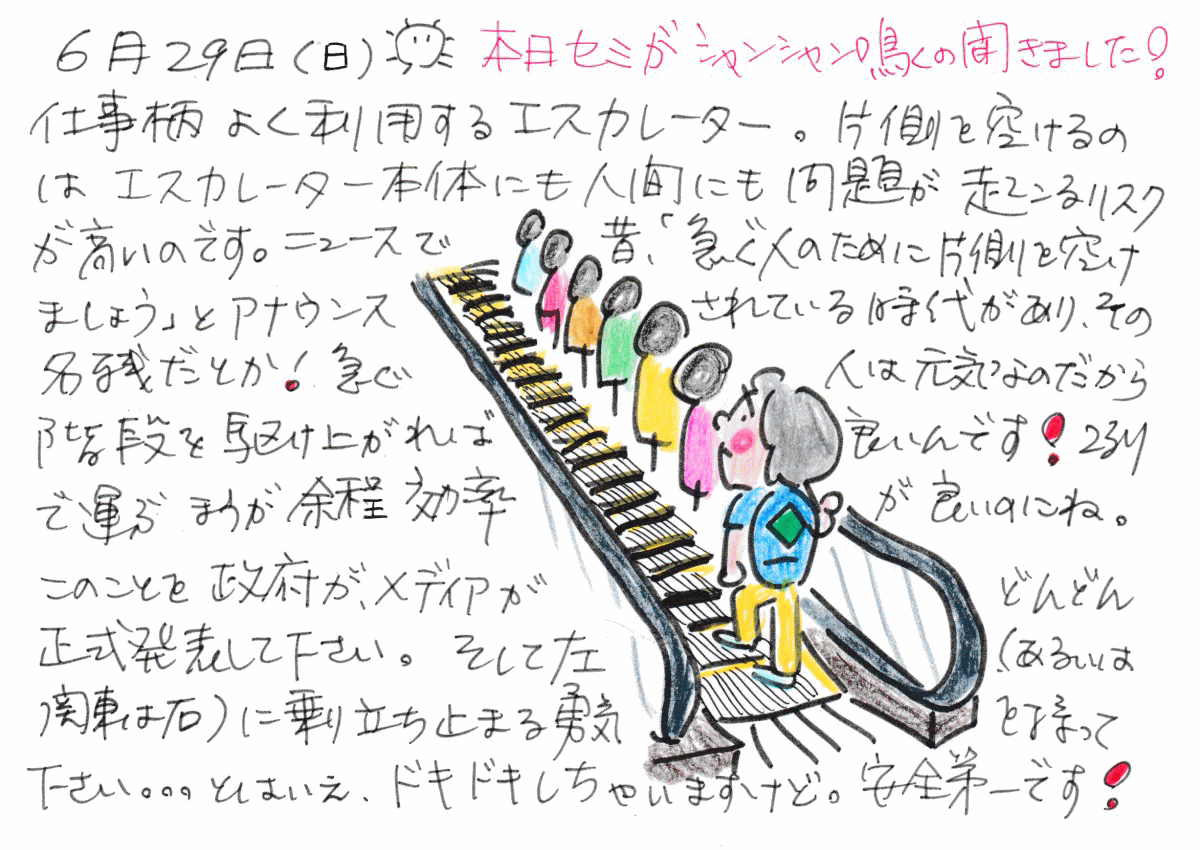 6月29日(日) 本日セミがシャンシャン鳴くの聞きました!
仕事柄よく利用するエスカレーター。片側を空けるの
はエスカレーター本体にも人間にも問題が起こるリスク
が高いのです。ニュースで 昔、「急ぐ人のために片側を空け
ましょう」とアナウンス されている時代があり、その
名残だとか! 急ぐ 人は元気なのだから
階段を駆け上がれば 良いんです! 2列
で運ぶほうが余程効率 が良いのにね。
このことを政府が、メディアが どんどん
正式発表して下さい。そして左 (あるいは
関東は右)に乗り立ち止まる勇気 を持って
下さい。。。とはいえ、ドキドキしちゃいますけど。安全第一です!